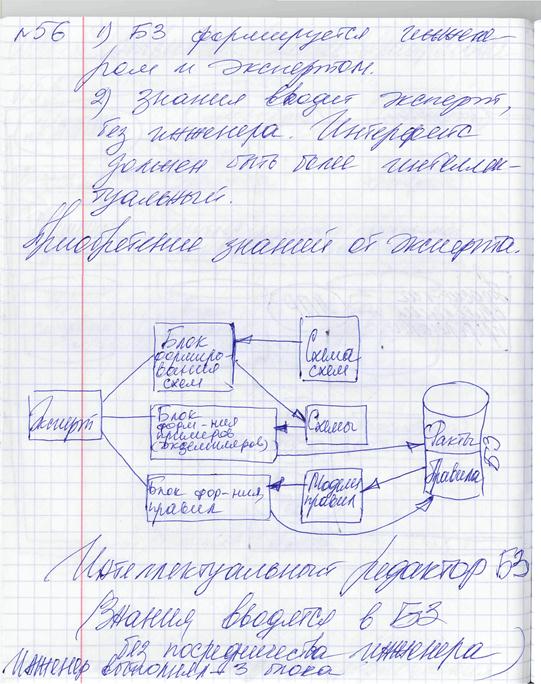 №56 1) БЗ формируется инжене-
ром и экспертом.
2) Знания вводит эксперт,
без инженера. Интерфейс
должен быть более интеллек-
туальный.
Приобретение знаний от эксперта.
Блок
формиро-
вания
схем
Схема
схем
Эксперт
Блок
форм-ния
примеров
(экземпляров)
Схемы
Факты
Правила
БЗ
Блок фор-ния
правил
Модели
правил
Интеллектуальный редактор БЗ
(Знания вводятся в БЗ
без посредничества инженера)
Инженер выполняет 3 блока